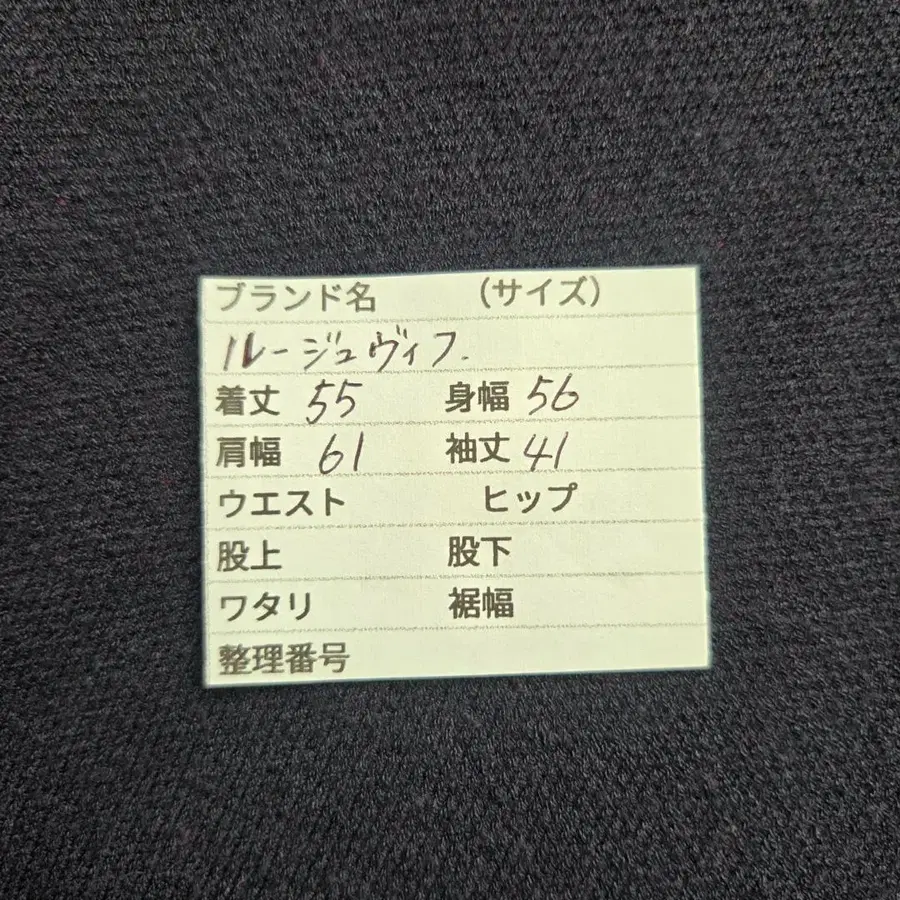 ブランド名 （サイズ）
ルージュヴィフ.
着丈 55 身幅 56
肩幅 61 袖丈 41
ウエスト ヒップ
股上 股下
ワタリ 裾幅
整理番号